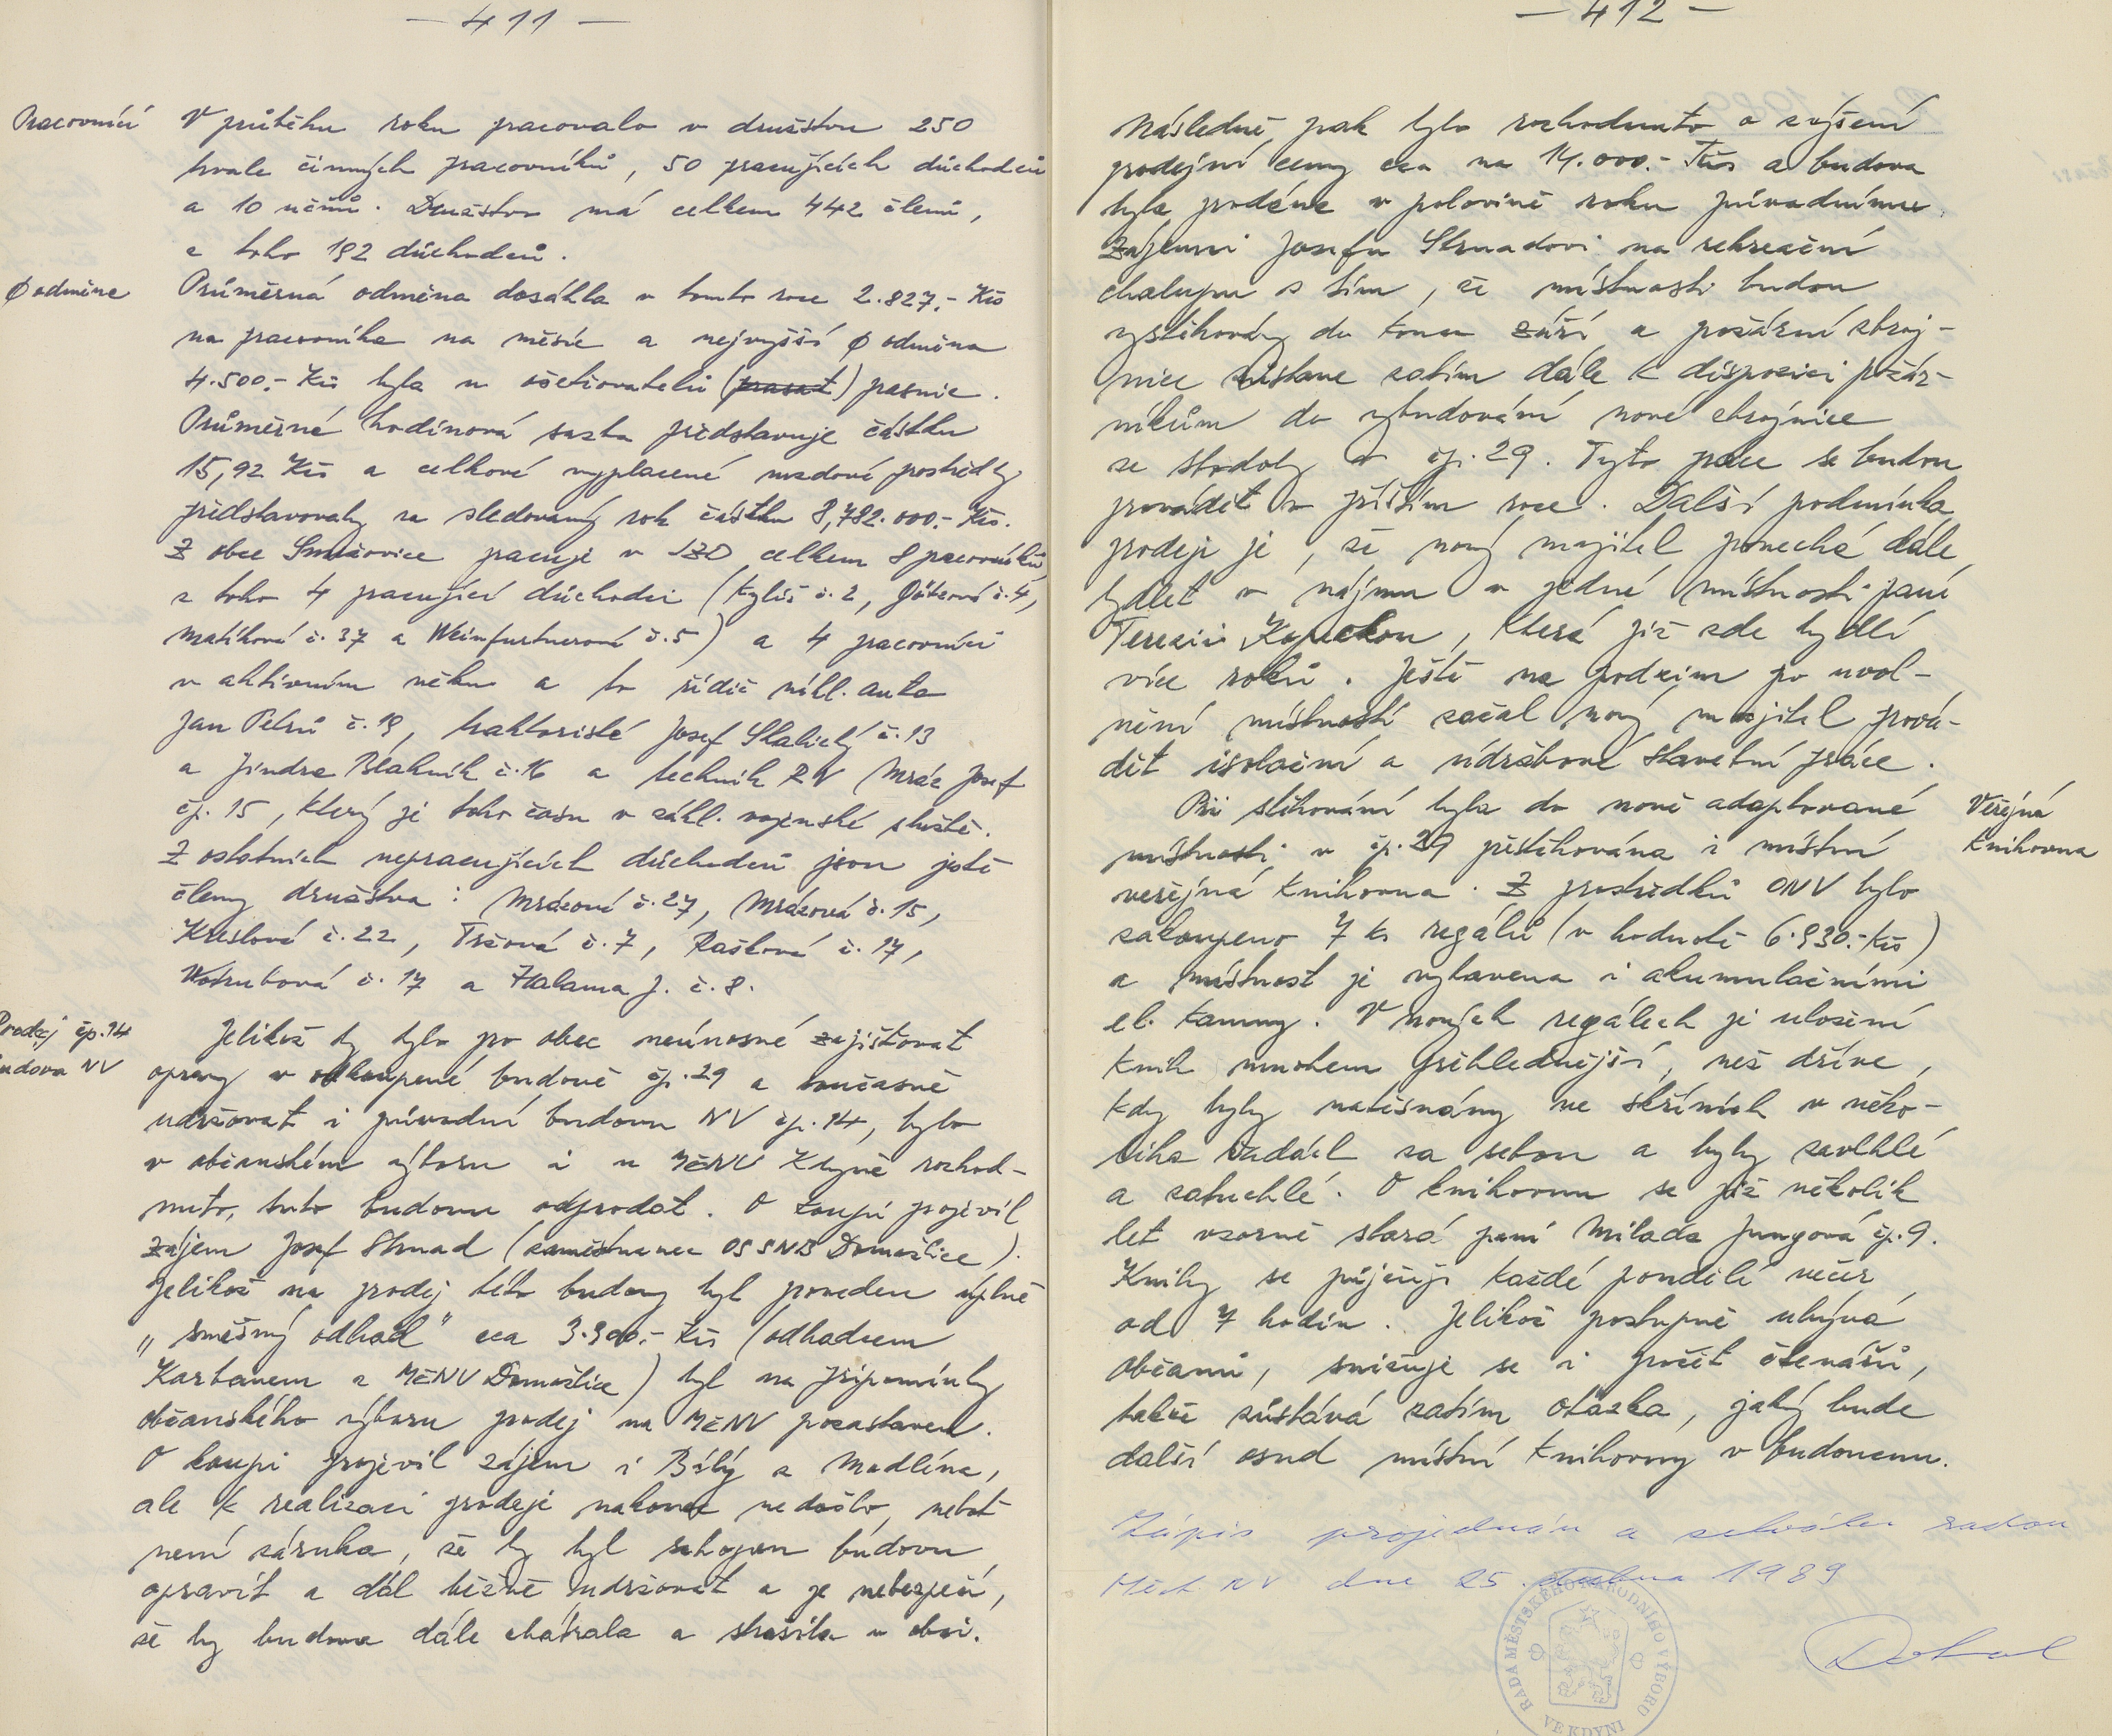 — 411 —
Pracovníci
V průběhu roku pracovalo v družstvu 250
trvale činných pracovníků, 50 pracujících důchodců
a 10 učňů. Družstvo má celkem 442 členů,
z toho 192 důchodců.
Ø odměna
Průměrná odměna dosáhla v tomto roce 2.827.- Kčs
na pracovníka na měsíc a nejvyšší Ø odměna
4.500.- Kčs byla u ošetřovatelů (prasat) prasnic.
Průměrná hodinová sazba představuje částku
15,92 Kčs a celkové vyplacené mzdové prostředky
představovaly za sledovaný rok částku 8,782.000.- Kčs.
Z obce Smržovice pracuje v JZD celkem 8 pracovníků
z toho 4 pracující důchodci (Kyliš č. 2, č. 4,
Matíková č. 37 a Weinfurtnerová č. 5) a 4 pracovníci
v aktivním věku a to řidič nákl. auta
Jan Petrů č. 19, traktoristé Josef Skalický č. 13
a Jindra Blahník č. 16 a technik RV Mráz Josef
čp. 15, který je toho času v zákl. vojenské službě.
Z ostatních nepracujících důchodců jsou ještě
členy družstva: Mrázová č. 27, Mrázová č. 15,
Kreslová č. 22, Tržová č. 7, Rašková č. 17,
Wotrubová č. 17 a Halama J. č. 8.
Prodej čp. 14
budova NV
Jelikož by bylo pro obec neúnosné zajišťovat
opravy v odkoupené budově čp. 29 a současně
udržovat i původní budovu NV čp. 14, bylo
v občanském výboru i u MěNV Kdyně rozhod-
nuto, tuto budovu odprodat. O koupi projevil
zájem Josef Strnad (zaměstnanec OS SNB Domažlice).
Jelikož na prodej této budovy byl proveden úplně
„směšný odhad" cca 3.900.- Kčs (odhadcem
Kartanem z MěNV Domažlice) byl na připomínky
občanského výboru prodej na MěNV pozastaven.
O koupi projevil zájem i Bílý z Modlína,
ale k realizaci prodeje nakonec nedošlo, neboť
není záruka, že by byl schopen budovu
opravit a dál běžně udržovat a je nebezpečí,
že by budova dále chátrala a strašila v obci.
— 412 —
Následně pak bylo rozhodnuto o zvýšení
prodejní ceny cca na 14.000.- Kčs a budova
byla prodána v polovině roku původnímu
zájemci Josefu Strnadovi na rekreační
chalupu s tím, že místnosti budou
vystěhovány do konce září a požární zbroj-
nice zůstane zatím dále k dispozici požár-
níkům do vybudování nové zbrojnice
ze stodoly v čp. 29. Tyto práce se budou
provádět v příštím roce. Další podmínka
prodeje je, že nový majitel ponechá dále
bydlet v nájmu v jedné místnosti paní
Terezii Kopeckou, která již zde bydlí
více roků. Ještě na podzim po uvol-
nění místností začal nový majitel prová-
dět isolační a údržbové stavební práce.
Veřejná
knihovna
Při stěhování byla do nově adaptované
místnosti v čp. 29 přestěhována i místní
veřejná knihovna. Z prostředků ONV bylo
zakoupeno 7 ks regálů (v hodnotě 6.930.- Kčs)
a místnost je vybavena i akumulačními
el. kamny. V nových regálech je uložení
knih mnohem přehlednější, než dříve,
kdy byly natěsnány ve skříních v něko-
lika řadách za sebou a byly zavlhlé
a zatuchlé. O knihovnu se již několik
let vzorně stará paní Milada Jungová čp. 9.
Knihy se půjčují každé pondělí večer
od 7 hodin. Jelikož postupně ubývá
občanů, snižuje se i počet čtenářů,
takže zůstává zatím otázka, jaký bude
další osud místní knihovny v budoucnu.
Zápis projednán a schválen radou
Měst NV dne 25. dubna 1989
RADA MĚSTSKÉHO NÁRODNÍHO VÝBORU
VE KDYNI